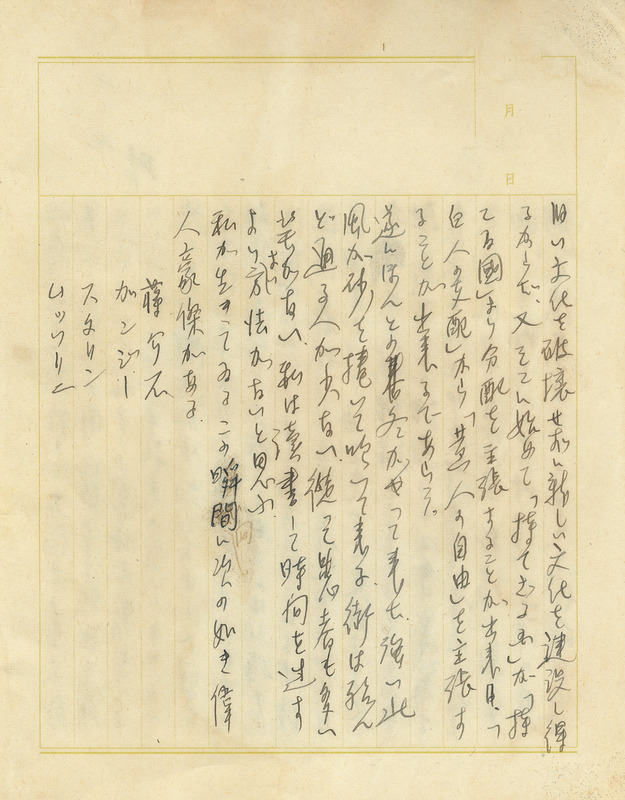 月
日
旧い文化を破壊せずに新しい文化を建設し得
るからだ、又そこに始めて「持てざる国」が「持
てる國」より分配を主張することが出来且つ
白人の支配」から「黄人の自由」を主張す
ることが出来るであらう。
遂にほんとの冬がやって来た。強い北
風が砂を捲いて吹いて来る、街は殆ん
ど通る人が少ない、従って患者も多い
筈がない、私は讀書して時间を過す
より方法がないと思ふ
私が生きてゐるこの瞬間に次の如き偉
人豪傑がある
蒋介石
ガンジー
スタリン
ムッソリニ